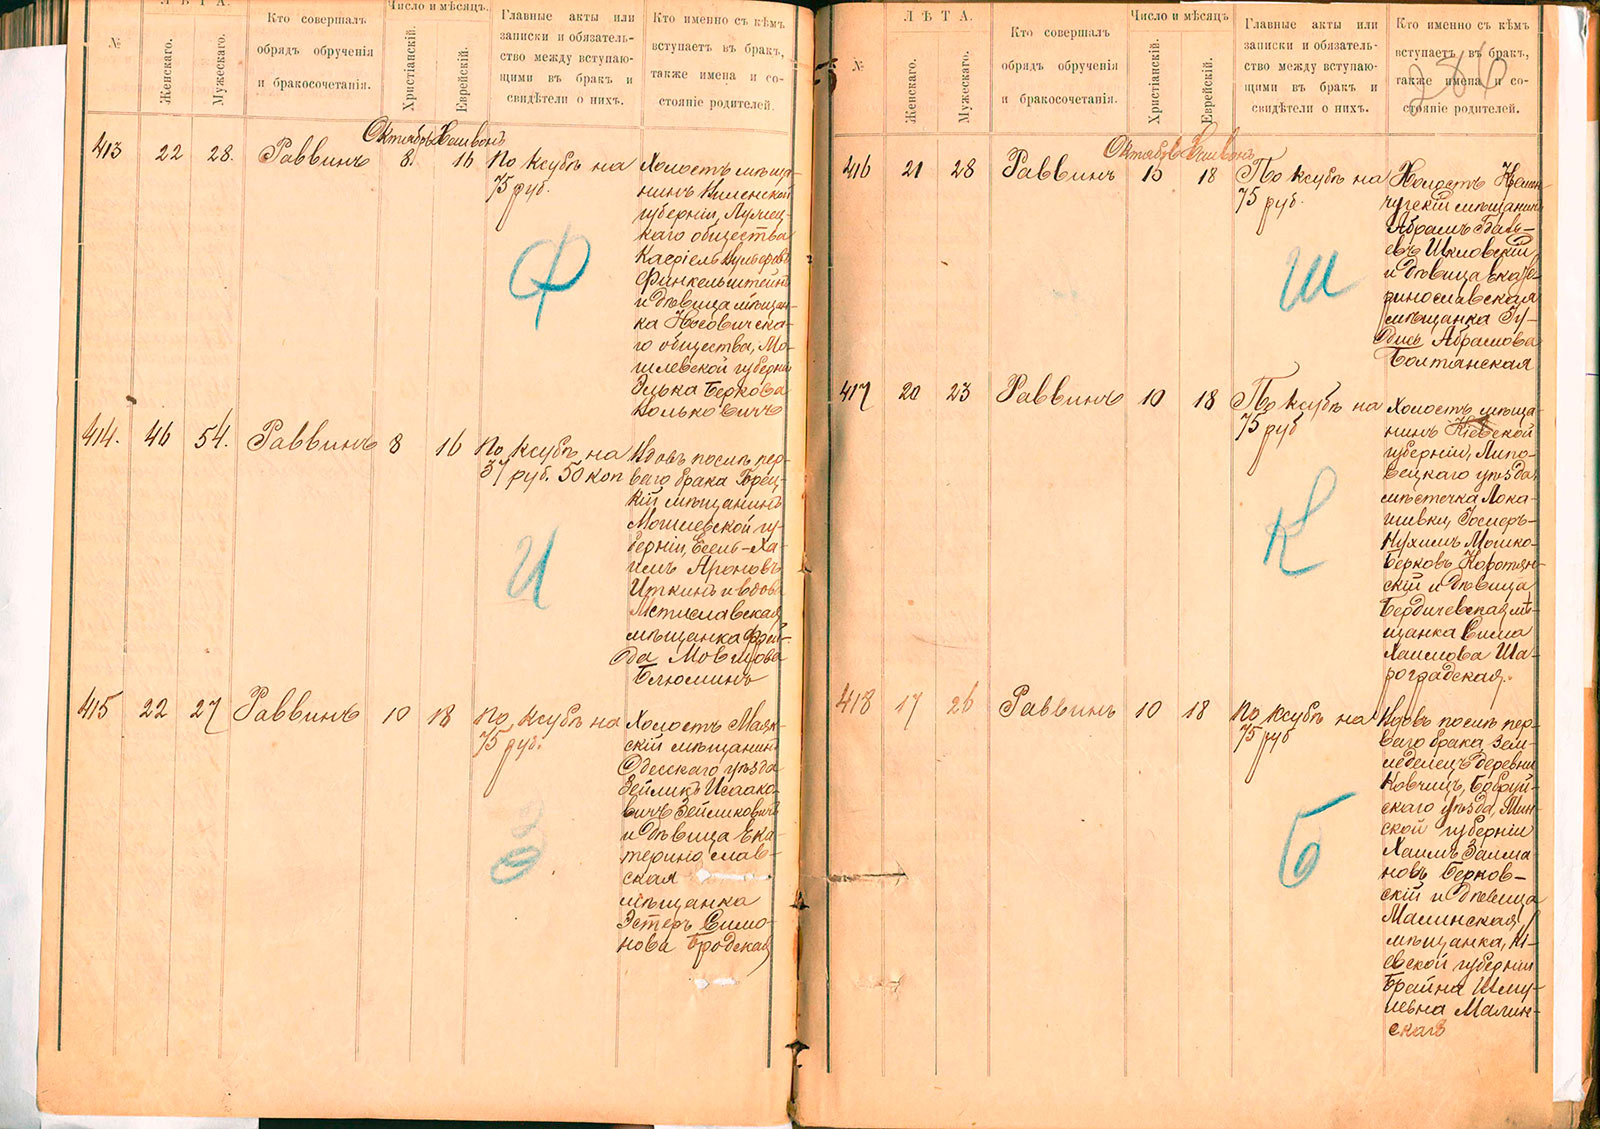 ЛѢТА.
№
Женскаго.
Мужескаго.
Кто совершалъ
обрядъ обрученія
и бракосочетанія.
Число и мѣсяцъ.
Христіанскій.
Еврейскій.
Главные акты или
записки и обязатель-
ство между вступаю-
щими въ бракъ и
свидѣтели о нихъ.
Кто именно съ кѣмъ
вступаетъ въ бракъ,
также имена и со-
стояніе родителей.
Октябрь Хешвонъ
413 22 28. Раввинъ 8. 16 По ксубѣ на
75 руб.
Ф
Холостъ мѣща-
нинъ Виленской
губерніи,
каго общества
Касріель
Финкельштейнъ
и дѣвица мѣщан-
ка Носовичска-
го общества, Мо-
гилевской губерніи
Элька Беркова
414. 46 54. Раввинъ 8 16 По ксубѣ на
37 руб. 50 коп
И
Вдовъ послѣ пер-
ваго брака Горец-
кій мѣщанинъ
Могилевской гу-
берніи, Есель-Ха-
имъ Ароновъ
Иткинъ и вдова
Мстиславская
мѣщанка Фрей-
да Мовшова
Блюминъ
415 22 27 Раввинъ 10 18 По ксубѣ на
75 руб.
З
Холостъ Маяк-
скій мѣщанинъ
Одесскаго уѣзда
Зейликъ Исаако-
вичъ Зейликовичъ
и дѣвица Ека-
теринослав-
ская
мѣщанка
Эстеръ Симо-
нова Бродская
ЛѢТА.
№
Женскаго.
Мужескаго.
Кто совершалъ
обрядъ обрученія
и бракосочетанія.
Число и мѣсяцъ
Христіанскій.
Еврейскій.
Главные акты или
записки и обязатель-
ство между вступаю-
щими въ бракъ и
свидѣтели о нихъ.
Кто именно съ кѣмъ
вступаетъ въ бракъ,
также имена и со-
стояніе родителей.
Октябрь Хешвонъ
416 21 28 Раввинъ 10 18 По ксубѣ на
75 руб.
Ш
Холостъ Кремен-
чугскій мѣщанинъ
Абрамъ
Шкловскій
и дѣвица Екате-
ринославская
мѣщанка Гу-
Абрамова
Болтянская
417 20 23 Раввинъ 10 18 По ксубѣ на
75 руб
К
Холостъ мѣща-
нинъ Кіевской
губерніи, Липо-
вецкаго уѣзда
мѣстечка Лука-
шивки,
Нухимъ Мошко-
Берковъ Коротян-
скій и дѣвица
Бердичевская мѣ-
щанка Сима
Хаимова Ша-
роградская.
418 17 26 Раввинъ 10 18 По ксубѣ на
75 руб
Б
Вдовъ послѣ пер-
ваго брака, зем-
леделецъ деревни
Ковчицъ, Бобруй-
скаго уѣзда, Мин-
ской губерніи
Хаимъ Залма-
новъ Берков-
скій и дѣвица
Малинская
мѣщанка, Кі-
евской губерніи
Брайна Шму-
левна Малин-